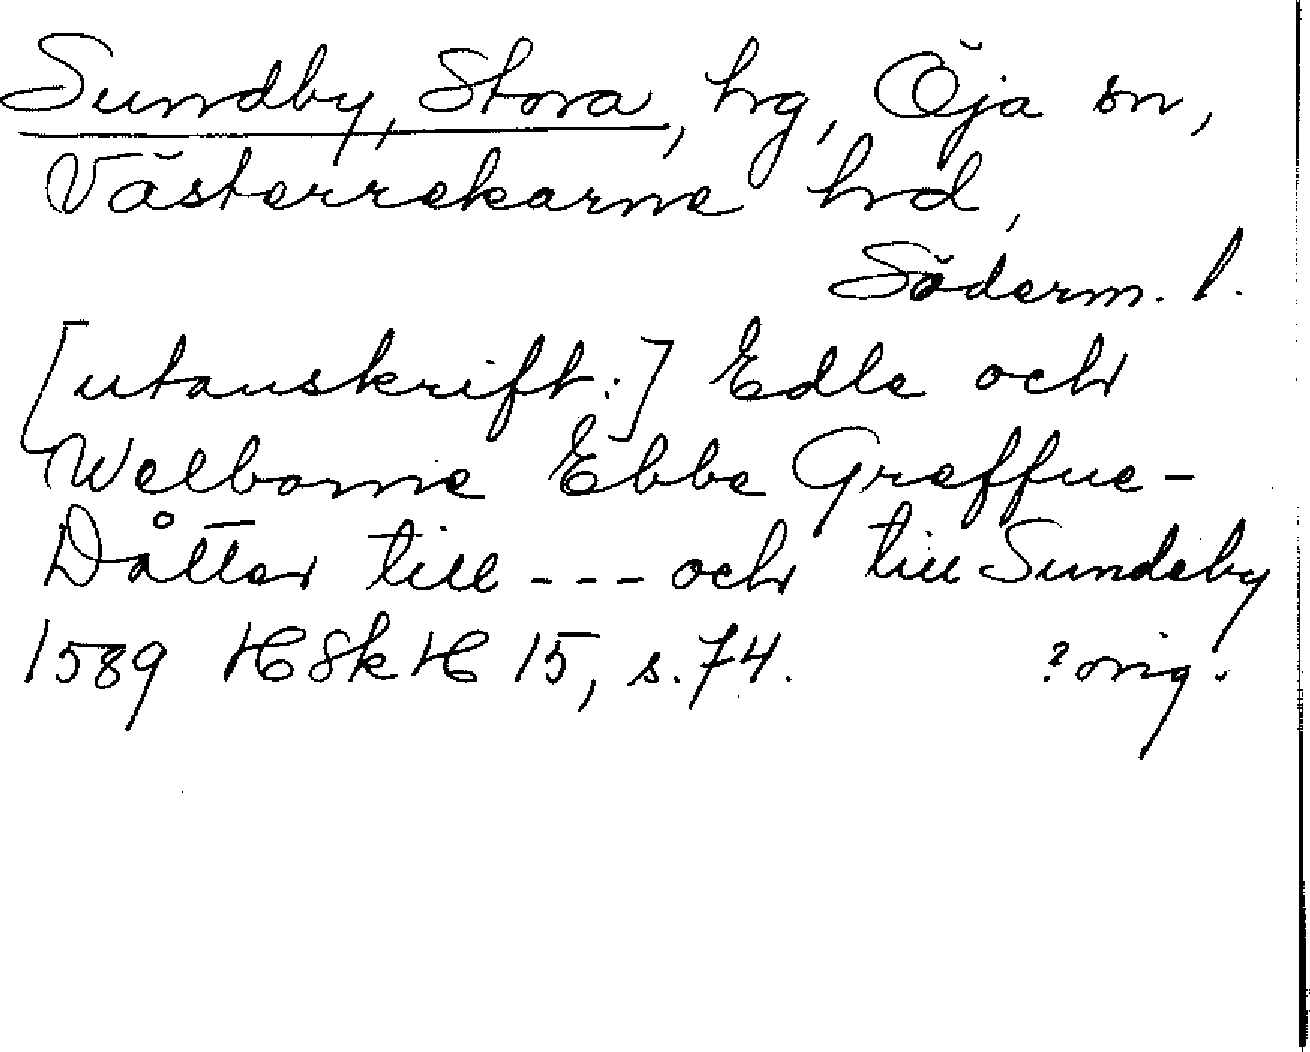 Sundby, Stora, hg, Öja sn,
Västerrekarne hrd,
Söderm. l.
[utanskrift:] Edle och
Welborne Ebbe Greffue-
Dåtter till --- och till Sundeby
1589 HSkH 15, s. 74. ? orig.